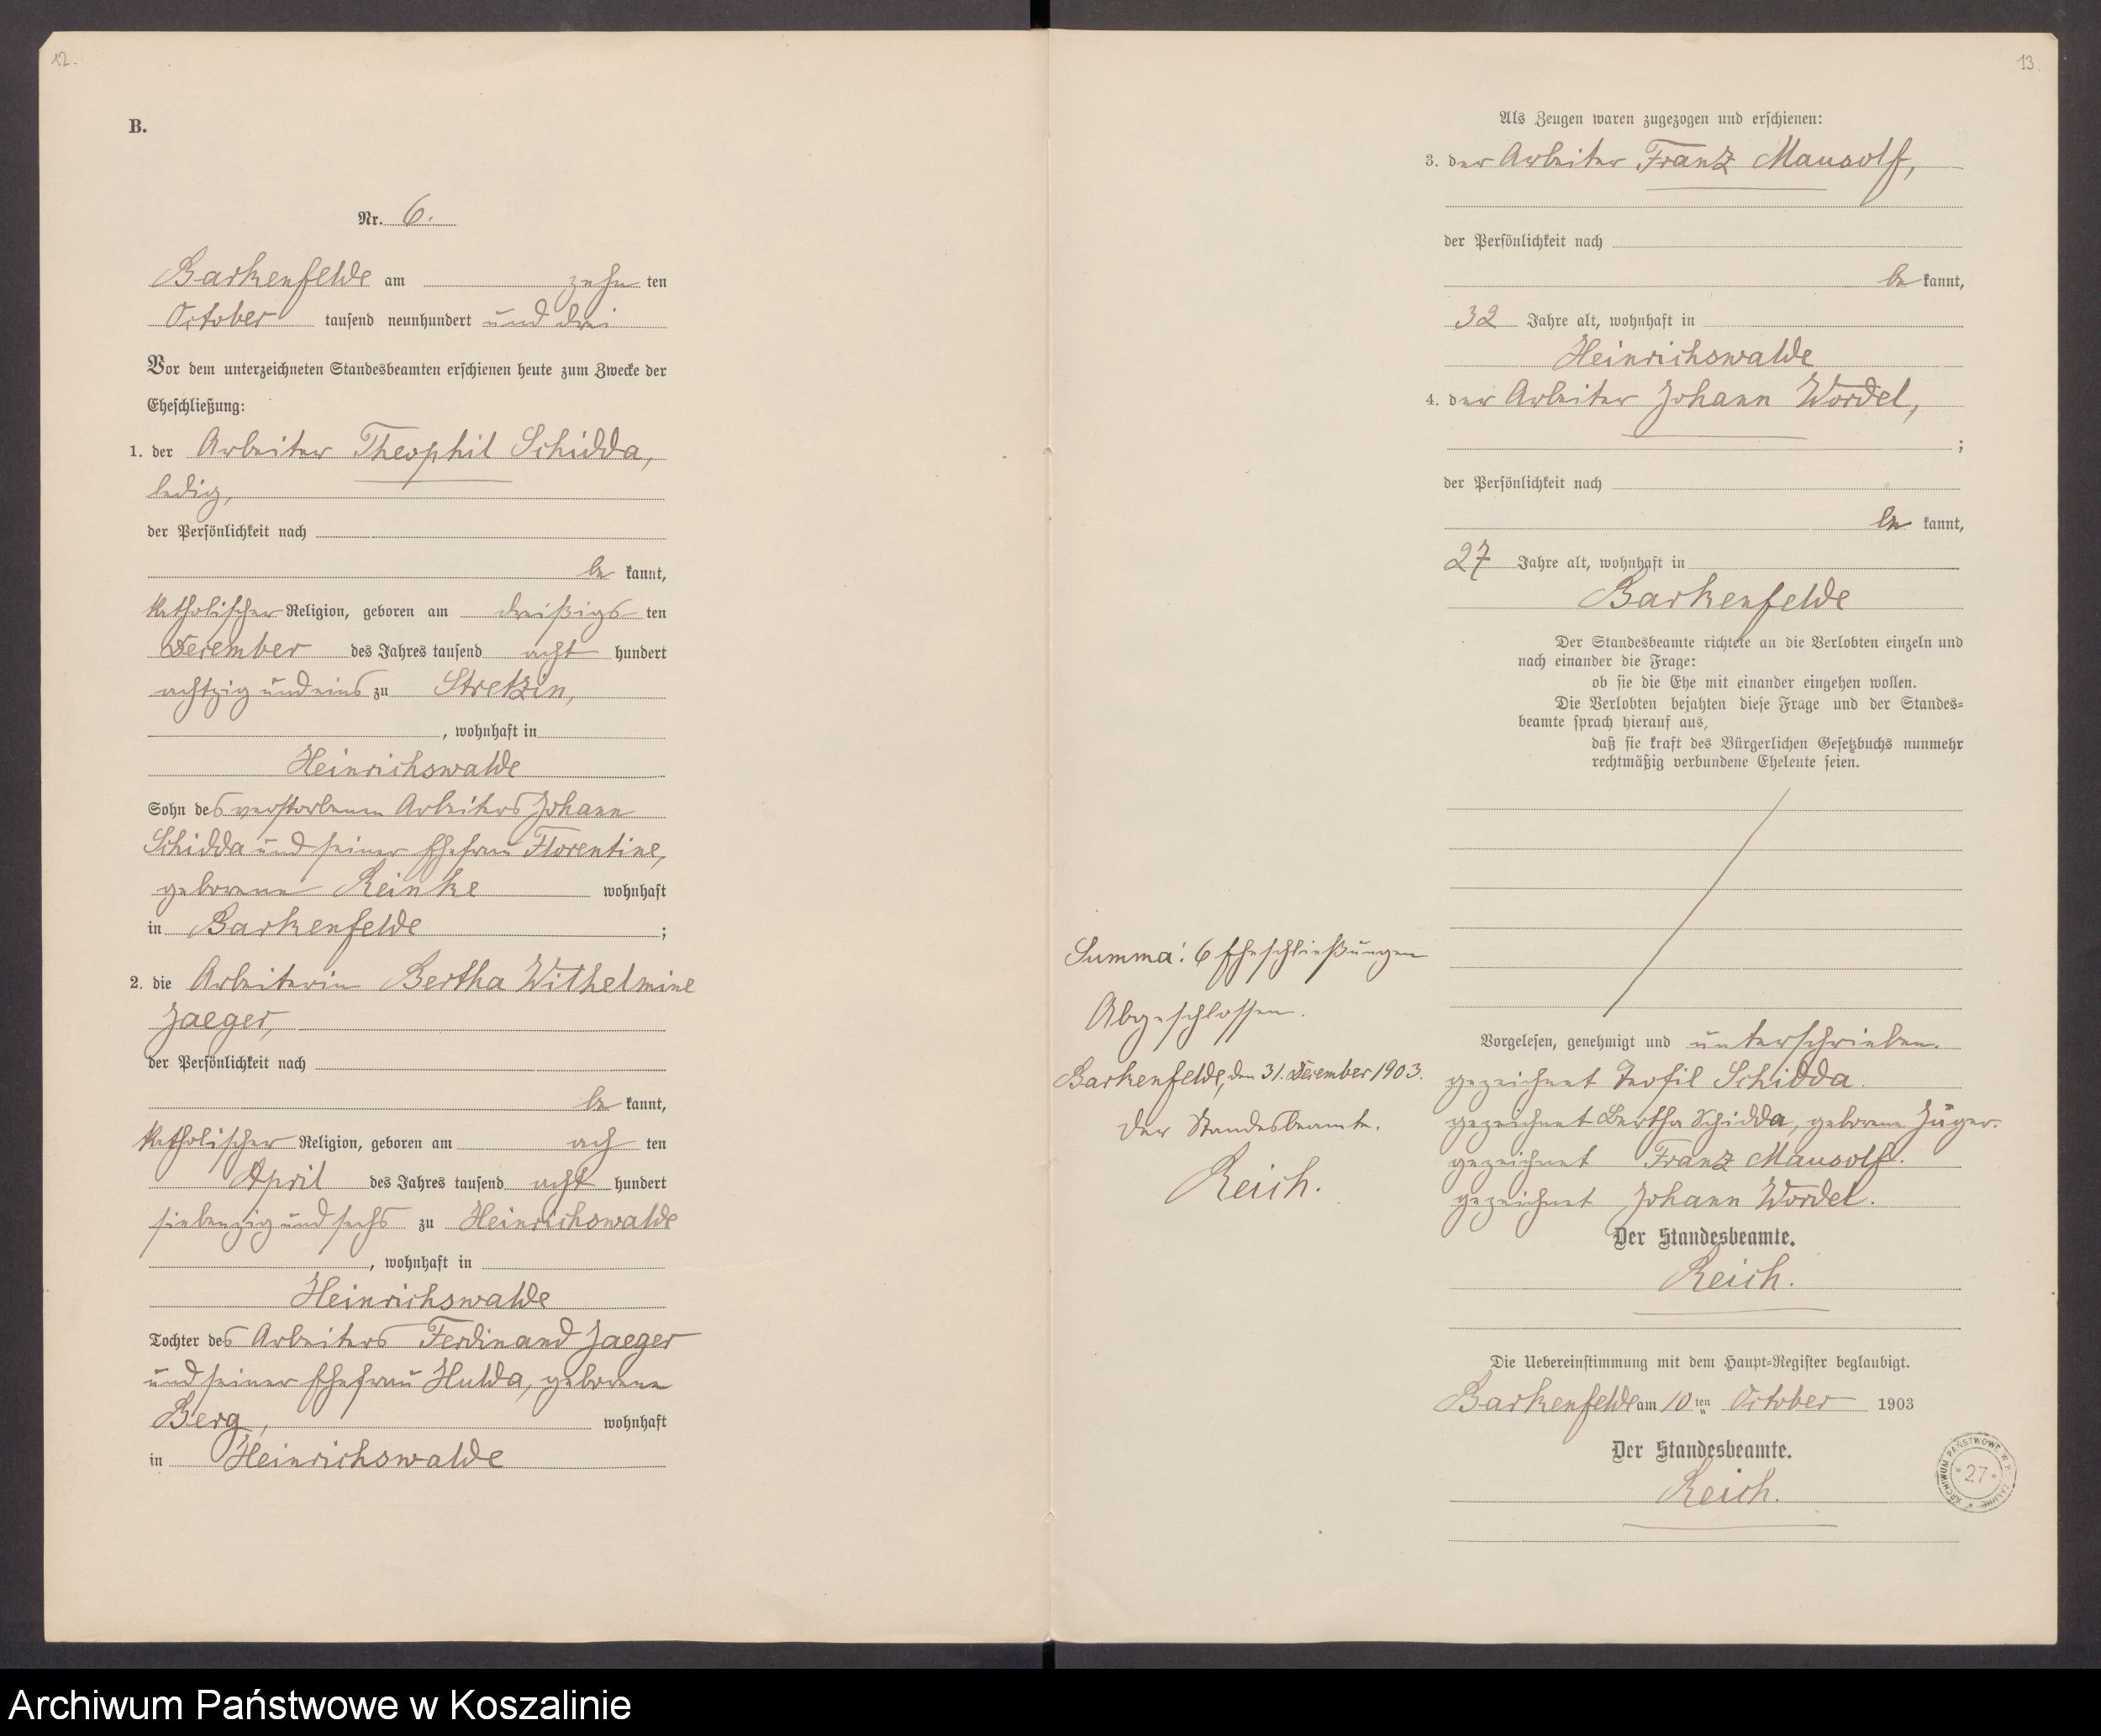 12.
B.
Nr. 6.
Barkenfelde am zehn ten
October tausend neunhundert und drei
Vor dem unterzeichneten Standesbeamten erschienen heute zum Zwecke der
Eheschließung:
1. der Arbeiter Theophil Schidda,
ledig,
der Persönlichkeit nach
be kannt,
katholischer Religion, geboren am dreißigs ten
December des Jahres tausend acht hundert
achtzig und eins zu Stretzin,
, wohnhaft in
Heinrichswalde
Sohn des verstorbenen Arbeiters Johann
Schidda und seiner Ehefrau Florentine,
geborene Reinke wohnhaft
in Barkenfelde ;
2. die Arbeiterin Bertha Wilhelmine
Jaeger,
der Persönlichkeit nach
be kannt,
katholischer Religion, geboren am ach ten
April des Jahres tausend acht hundert
siebenzig und sechs zu Heinrichswalde
, wohnhaft in
Heinrichswalde
Tochter des Arbeiters Ferdinand Jaeger
und seiner Ehefrau Hulda, geborene
Berg, wohnhaft
in Heinrichswalde
13.
Als Zeugen waren zugezogen und erschienen:
3. der Arbeiter Franz Mausolf,
der Persönlichkeit nach
be kannt,
32 Jahre alt, wohnhaft in
Heinrichswalde
4. der Arbeiter Johann Wordel,
;
der Persönlichkeit nach
be kannt,
27 Jahre alt, wohnhaft in
Barkenfelde
Der Standesbeamte richtete an die Verlobten einzeln und
nach einander die Frage:
ob sie die Ehe mit einander eingehen wollen.
Die Verlobten bejahten diese Frage und der Standes-
beamte sprach hierauf aus,
daß sie kraft des Bürgerlichen Gesetzbuchs nunmehr
rechtmäßig verbundene Eheleute seien.
Summa: 6 Eheschließungen
Abgeschlossen.
Barkenfelde, den 31. December 1903.
Der Standesbeamte.
Reich.
Vorgelesen, genehmigt und unterschrieben.
gezeichnet Teofil Schidda.
gezeichnet Bertha Schidda, geborene Jäger.
gezeichnet Franz Mausolf.
gezeichnet Johann Wordel.
Der Standesbeamte.
Reich.
Die Uebereinstimmung mit dem Haupt-Register beglaubigt.
Barkenfelde am 10 ten October 1903
Der Standesbeamte.
Reich.
ARCHIWUM PAŃSTWOWE W
* 27 *
Archiwum Państwowe w Koszalinie